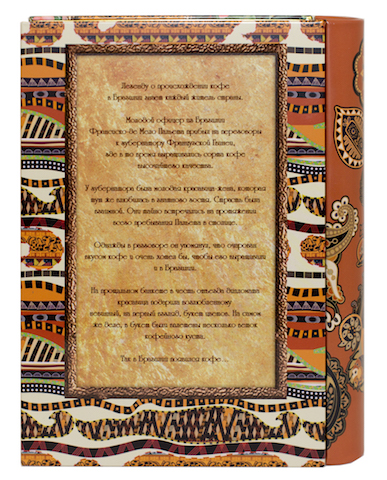 Легенду о происхождении кофе
в Бразилии знает каждый житель страны.
Молодой офицер из Бразилии
Франциско де Мело Пальета прибыл на переговоры
к губернатору Французской Гвианы,
где в то время выращивались сорта кофе
высочайшего качества.
У губернатора была молодая красавица-жена, которая
тут же влюбилась в знатного гостя. Страсть была
взаимной. Они тайно встречались на протяжении
всего пребывания Пальета в столице.
Однажды в разговоре он упомянул, что очарован
вкусом кофе и очень хотел бы, чтобы его выращивали
и в Бразилии.
На прощальном банкете в честь отъезда дипломата
красавица подарила возлюбленному
невинный, на первый взгляд, букет цветов. На самом
же деле, в букет были вплетены несколько веток
кофейного куста.
Так в Бразилии появился кофе...